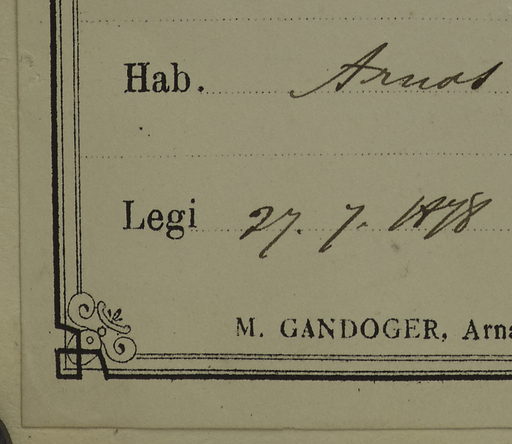 Hab. Arnas
Legi 27. 7. 1878
M. GANDOGER, Arna